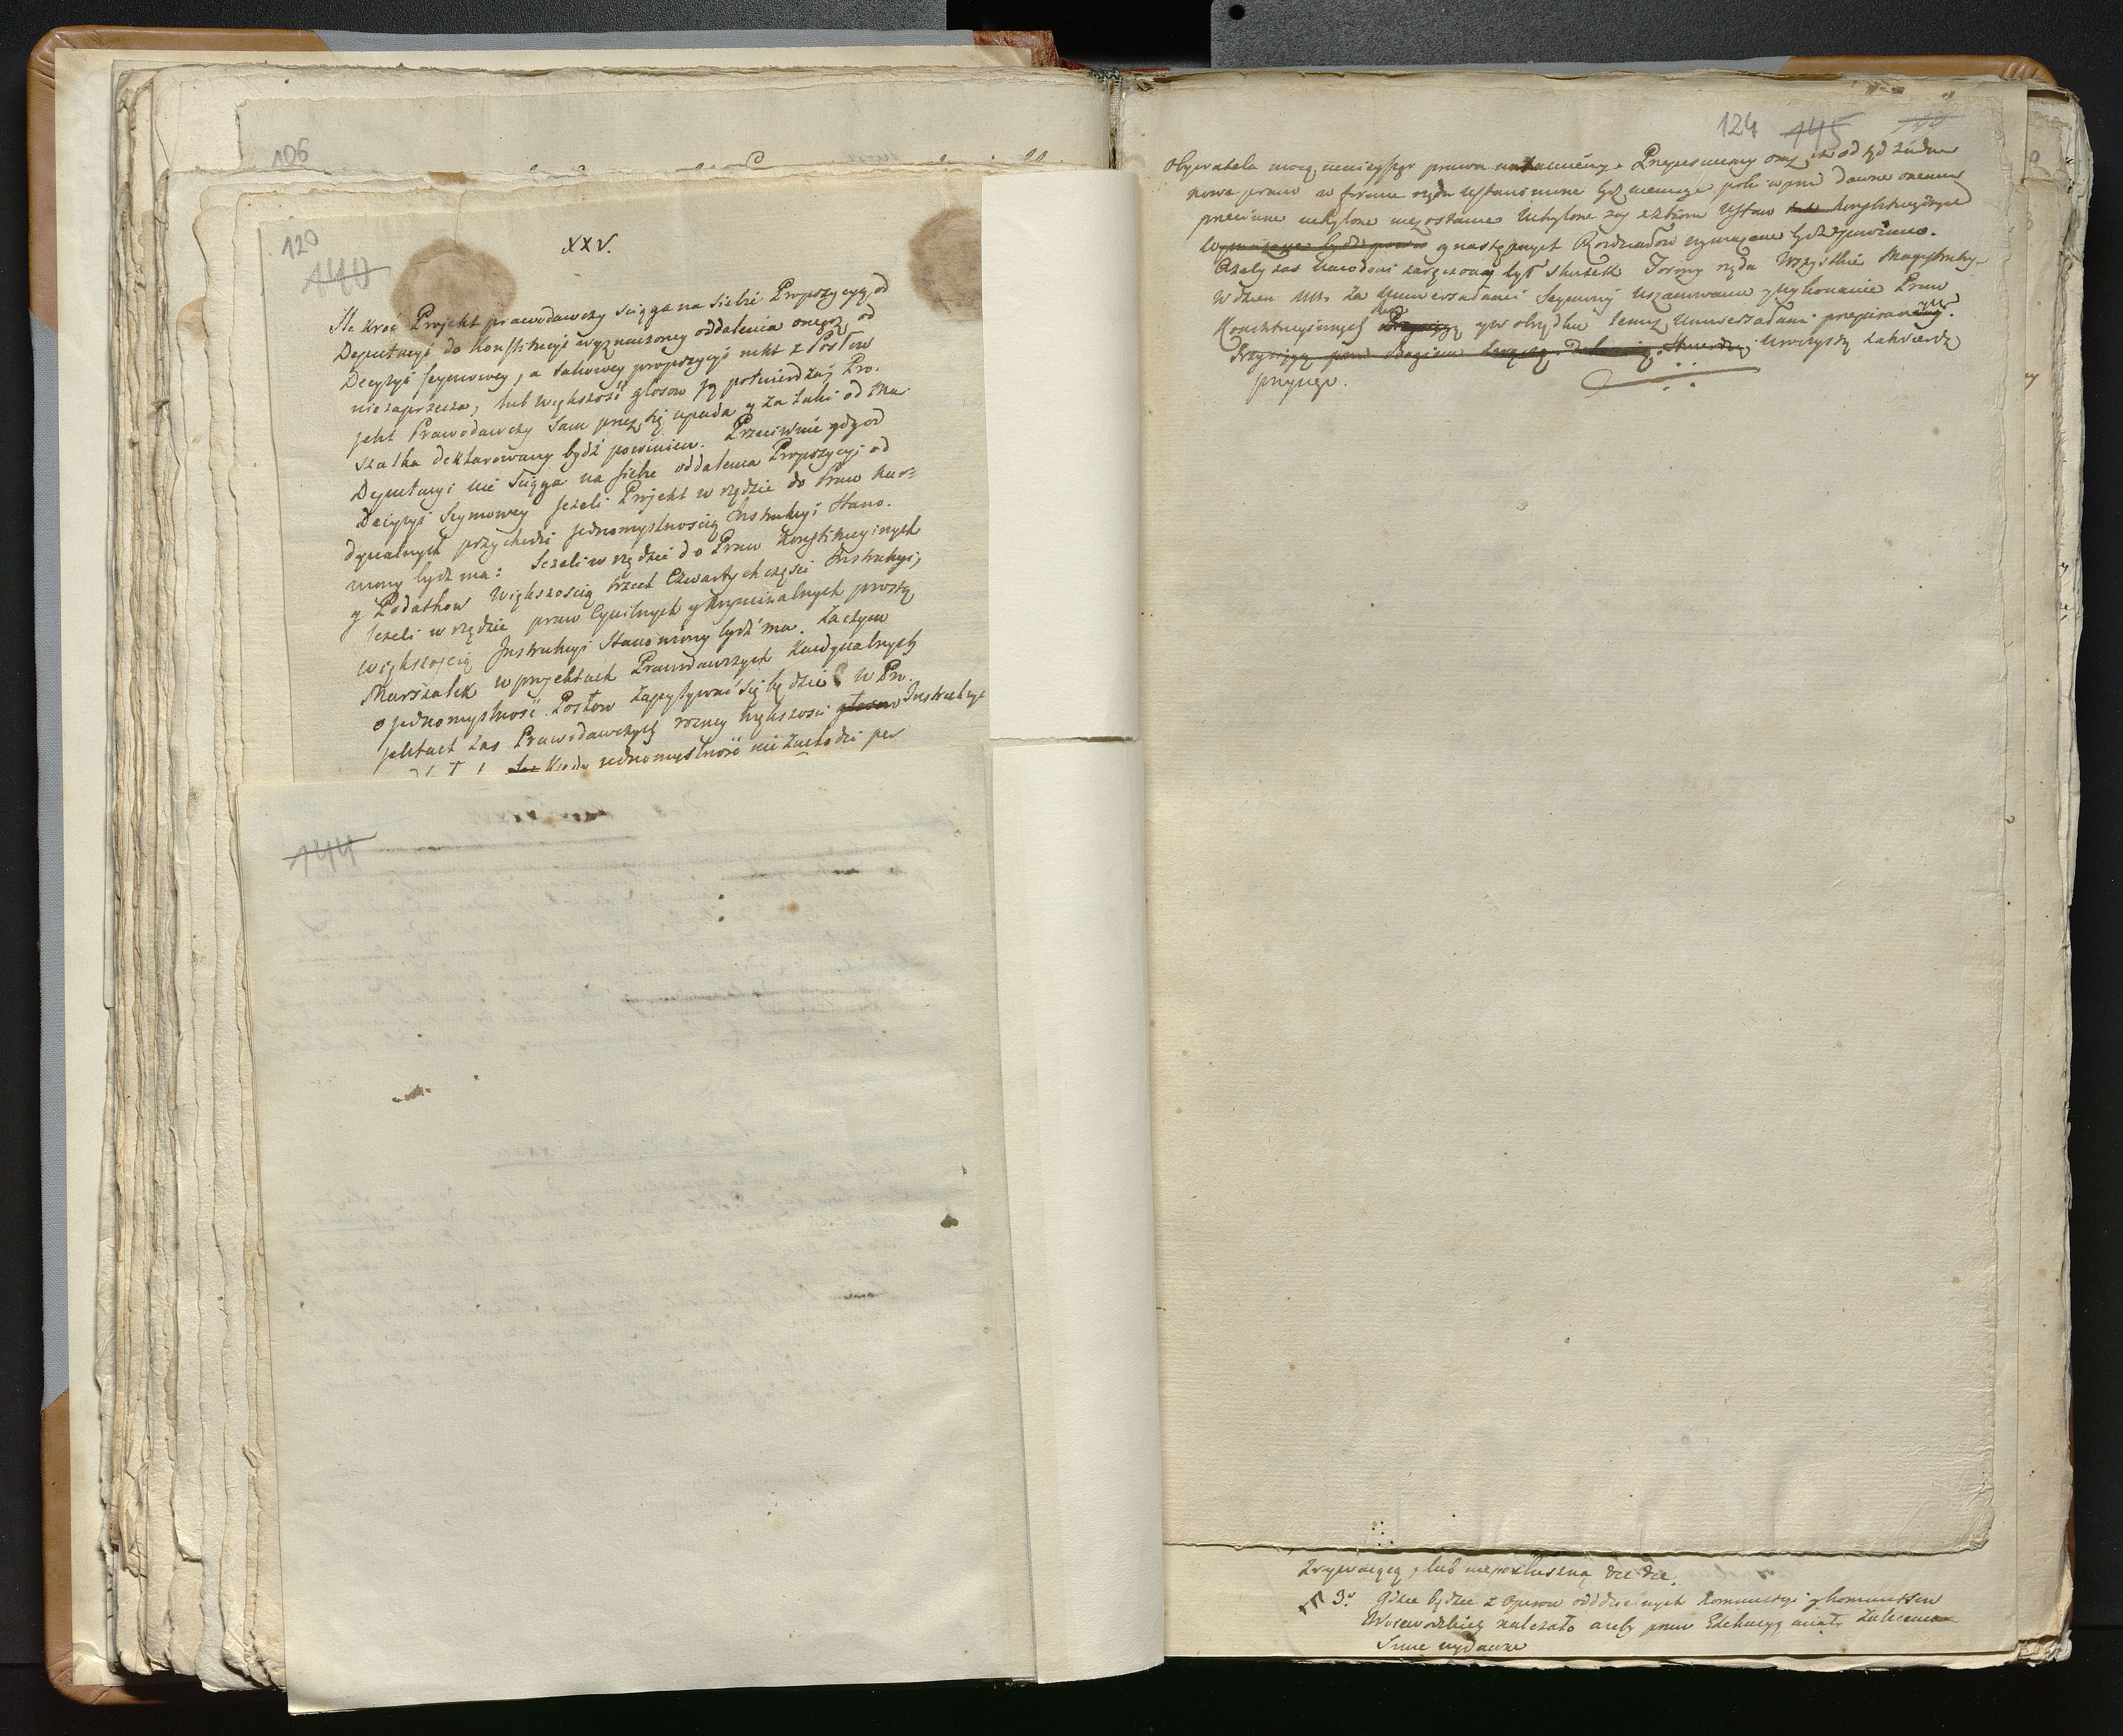 106
120
140
XXV.
Ile kroć Projekt prawodawczy sciąga na siebie Propozycyą od
Deputacyi do Konstitucyi wyznaczoney oddalenia onegoż od
Decyzyi seymowey, a takowey propozycyi nikt z Posłow
nie zaprzecza, lub większość głosow ją potwierdza; Pro-
jekt Prawodawczy sam przez się upada y za taki od Mar
szałka deklarowany bydź powinien. Przeciwnie gdy od
Deputacyi nie sciąga na siebie oddalenia Propozycyi od
Decyzyi Seymowey jeżeli Projekt w rzędzie do Praw Kar=
dynalnych przychodzi jednomyslnością Instrukcyi stano-
wiony bydź ma: Jeżeli w rzędzie do Praw Konstitucyinych
y Podatkow większością trzech czwartych części Instrukcyi,
Jeżeli w rzędzie praw Cywilnych y Kryminalnych prostą
większością Instrukcyi stanowiony bydź ma. Zaczym
Marszałek w projektach Prawodawczych Kardynalnych
o jednomyslność Posłow zapytywać się będzie W Pro
jektach zas Prawodawczych rozney większosci głosow Instrukcyi
Kiedy jednomyslność nie zachodzi per
144
124 145
Obywatela mocą prawa Przypisujemy oraz iż od tąd żadne
nowe prawo w formie rządu ustanowione bydź niemoże poki wprzod dawne onemu
przeciwne uchylone niezostanie Uchylone zaś z zbioru Ustaw Konstytucyinych
y następnych Rozdziałow wymazane bydź powinno.
Ażeby zas Narodowi zaręczony był skutek Formy rządu wszystkie Magistratury
w dzien za Uniwersałami Seymu uszanowanie y wykonanie Praw
Konstytucyinych y w obrządku temiż Uniwersałami przepisanym
Przysięgą przed Bogiem uroczystą zatwierdzą
przysięgą.
Zrywaiącą, lub nieposłuszną będzie.
3o Gdzie będzie z Opisow oddzielnych Kommissyi y Kommissyow
Woiewodzkich należało ażeby prawo Exekucyą miało zalecenia
Inne wydawane